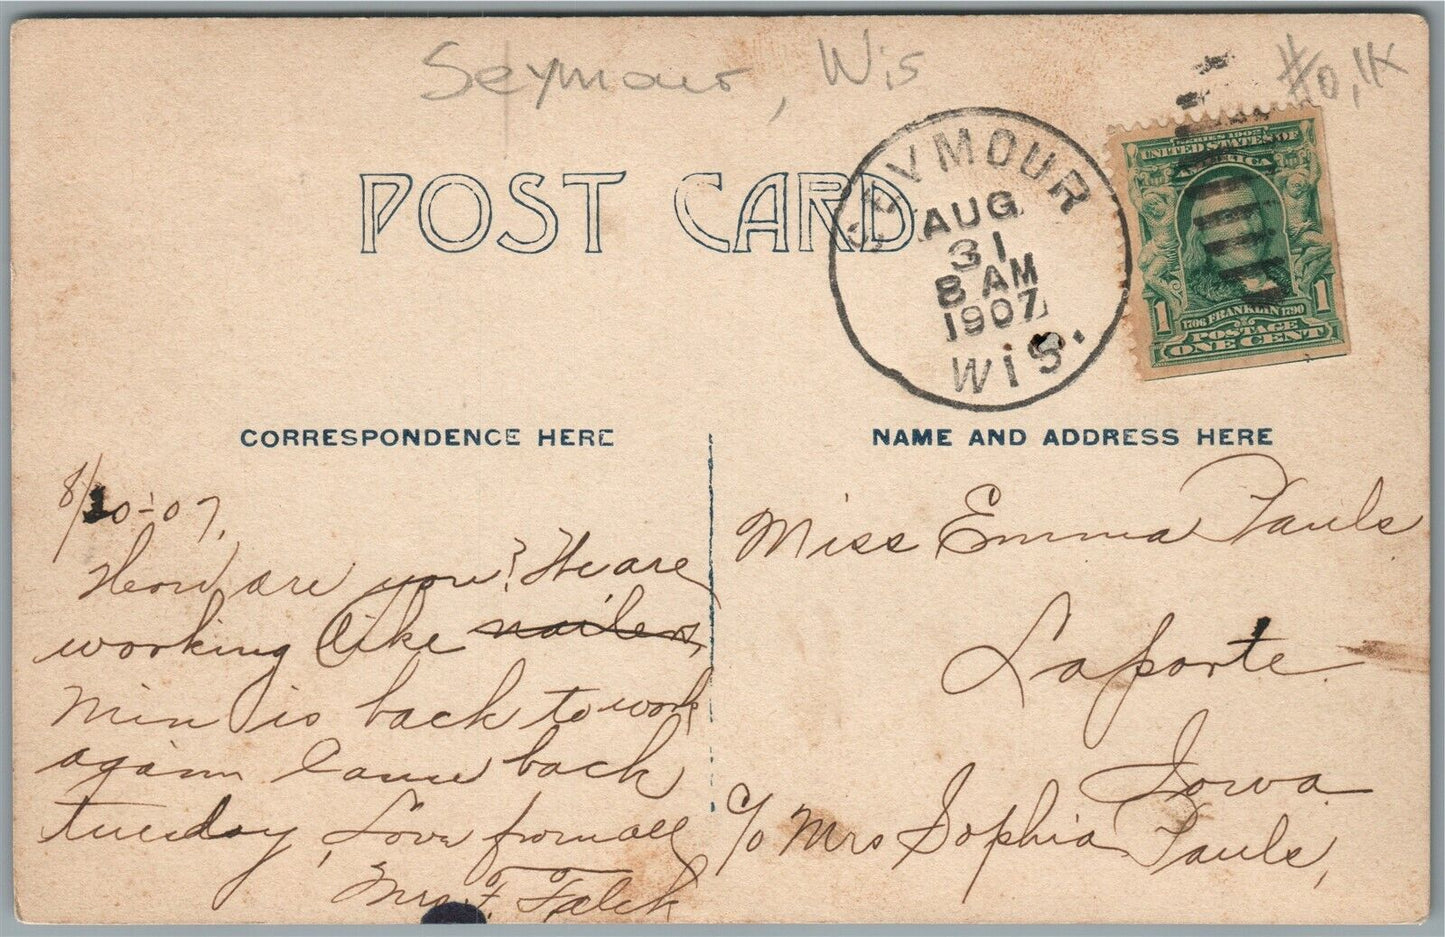 Seymour, Wis
POST CARD
SEYMOUR
AUG
31
8 AM
1907
WIS.
SERIES 1902
UNITED STATES OF
AMERICA
1 1
1706 FRANKLIN 1790
POSTAGE
ONE CENT
CORRESPONDENCE HERE
8/30-07,
How are you? We are
working like nailers,
Min is back to work
again came back
tuesday, Love from all
Mrs. F. Falck
NAME AND ADDRESS HERE
Miss Emma Pauls
Laporte
Iowa
c/o Mrs Sophia Pauls,